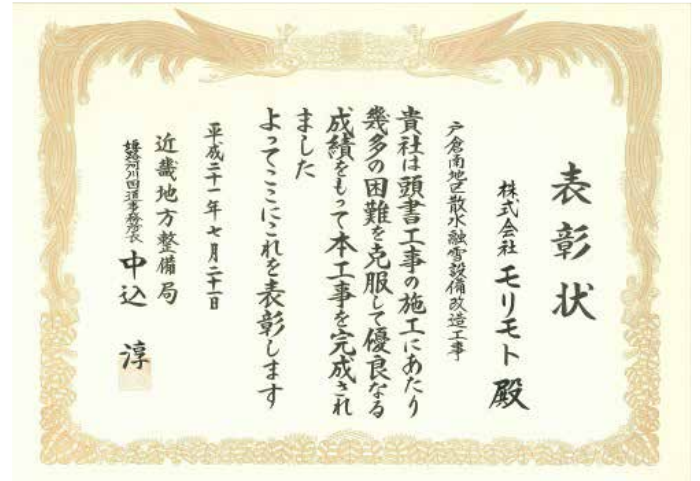 表彰状
株式会社 モリモト 殿
戸倉南地区散水融雪設備改造工事
貴社は頭書工事の施工にあたり
幾多の困難を克服して優良なる
成績をもって本工事を完成され
ました
よってここにこれを表彰します
平成二十一年七月二十一日
近畿地方整備局
姫路河川国道事務所長 中込 淳